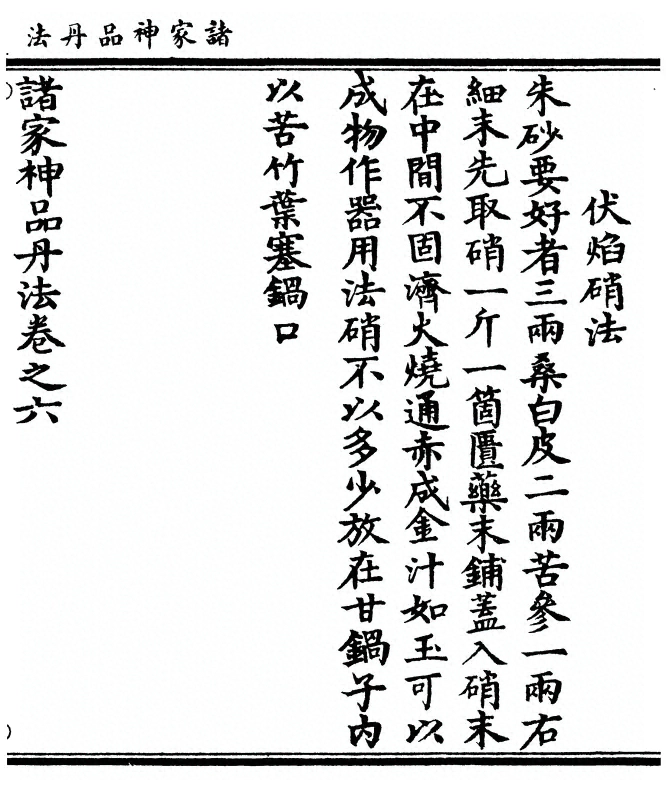 諸家神品丹法
伏焰硝法
朱砂要好者三兩桑白皮二兩苦參一兩右
細末先取硝一斤一箇匱藥末鋪蓋入硝末
在中間不固濟火燒通赤成金汁如玉可以
成物作器用法硝不以多少放在甘鍋子内
以苦竹葉塞鍋口
諸家神品丹法卷之六